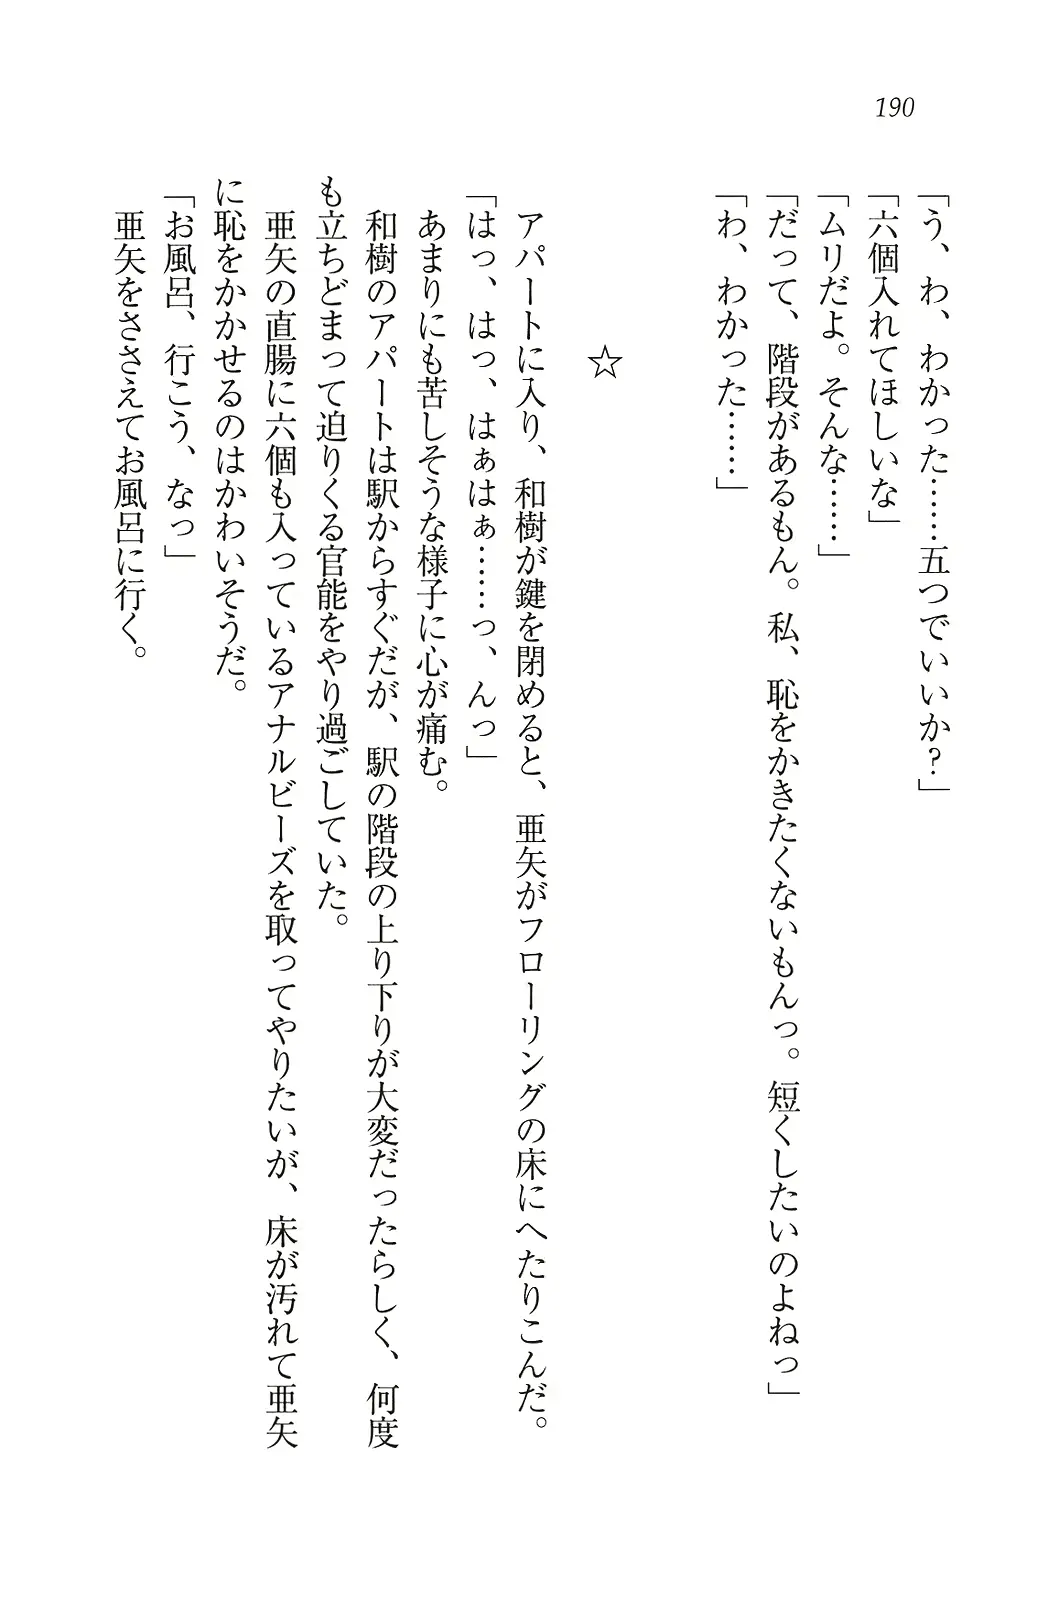 190
「う、わ、わかった……五つでいいか?」
「六個入れてほしいな」
「ムリだよ。そんな……」
「だって、階段があるもん。私、恥をかきたくないもんっ。短くしたいのよねっ」
「わ、わかった……」
☆
アパートに入り、和樹が鍵を閉めると、亜矢がフローリングの床にへたりこんだ。
「はっ、はっ、はぁはぁ……っ、んっ」
あまりにも苦しそうな様子に心が痛む。
和樹のアパートは駅からすぐだが、駅の階段の上り下りが大変だったらしく、何度
も立ちどまって迫りくる官能をやり過ごしていた。
亜矢の直腸に六個も入っているアナルビーズを取ってやりたいが、床が汚れて亜矢
に恥をかかせるのはかわいそうだ。
「お風呂、行こう、なっ」
亜矢をささえてお風呂に行く。